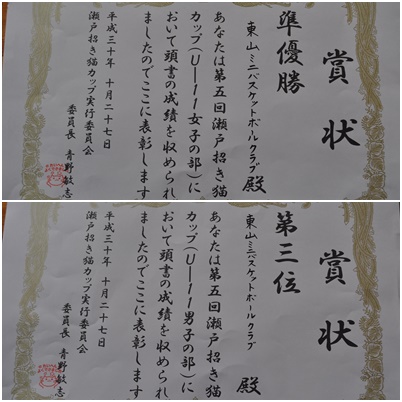 賞状
準優勝
東山ミニバスケットボールクラブ 殿
あなたは第五回瀬戸招き猫
カップ(U−11女子の部)に
おいて頭書の成績を収められ
ましたのでここに表彰します
平成三十年 十月二十七日
瀬戸招き猫カップ実行委員会
委員長 青野敏志
賞状
第三位
東山ミニバスケットボールクラブ 殿
あなたは第五回瀬戸招き猫
カップ(U−11男子の部)に
おいて頭書の成績を収められ
ましたのでここに表彰します
平成三十年 十月二十七日
瀬戸招き猫カップ実行委員会
委員長 青野敏志